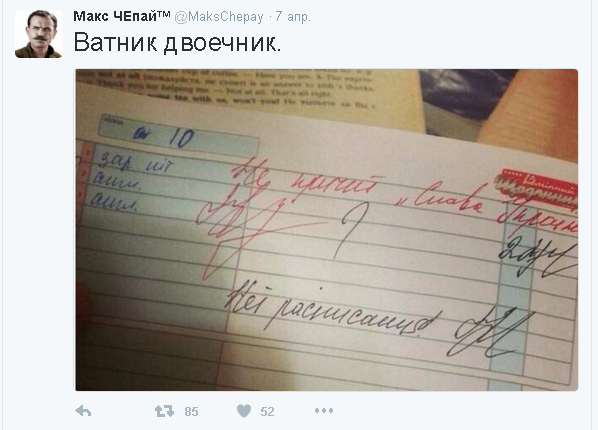 Макс ЧЕпай™ @MaksChepay · 7 апр.
Ватник двоечник.
not at all cup of coffee. — Have you are. 2. The
Thank you for helping me. — Not at all. That's all right.
with us, won't you! Не выпьете ли Вы с
10
зар літ
англ.
англ.
Не кричит „Слава Україн
Шкільний
щоденник
Нет расписания!
85
52